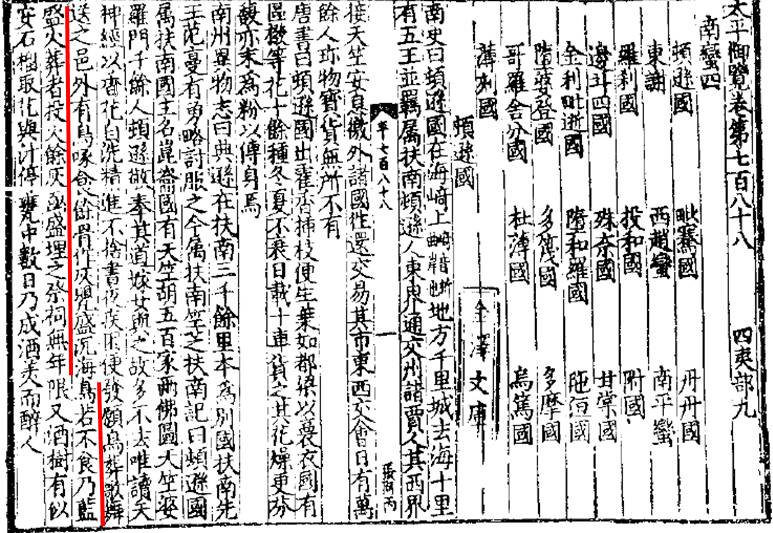 太平御覽卷第七百八十八 四夷部九
南蠻四
頓遜國 毗騫國 丹丹國
東謝 西趙蠻 南平蠻
羅剎國 投和國 附國
邊斗四國 殊奈國 甘棠國
金利毗逝國 墮和羅國 陁洹國
墮婆登國 多蔑國 多摩國
哥羅舍分國 杜薄國 烏篤國
薄剌國
金澤文庫
頓遜國
南史曰頓遜國在海崎上地方千里城去海十里
有五王並羈屬扶南頓遜人東界通交州諸賈人其西界
平七百八十八 一
接天竺安息徼外諸國往還交易其市東西交會日有萬
餘人珍物寶貨無所不有
唐書曰頓遜國出藿香插枝便生葉如都梁以裛衣國有
區撥等花十餘種冬夏不衰日載十車貨之其花燥更芬
馥亦末為粉以傅身焉
南州異物志曰典遜在扶南三千餘里本為別國扶南先
王范蔓有勇略討服之今屬扶南竺芝扶南記曰頓遜國
屬扶南國王名崑崙國有天竺胡五百家兩佛圖天竺婆
羅門千餘人頓遜敬奉其道嫁女與之故多不去唯讀天
神經以香花自洗精進不捨晝夜疾困便發願鳥葬歌舞
送之邑外有鳥啄食餘骨作灰甖盛沉海鳥若不食乃藍
盛火葬者投火餘灰函盛埋之祭祠無年限又酒樹有似
安石榴取花與汁停甕中數日乃成酒美而醉人